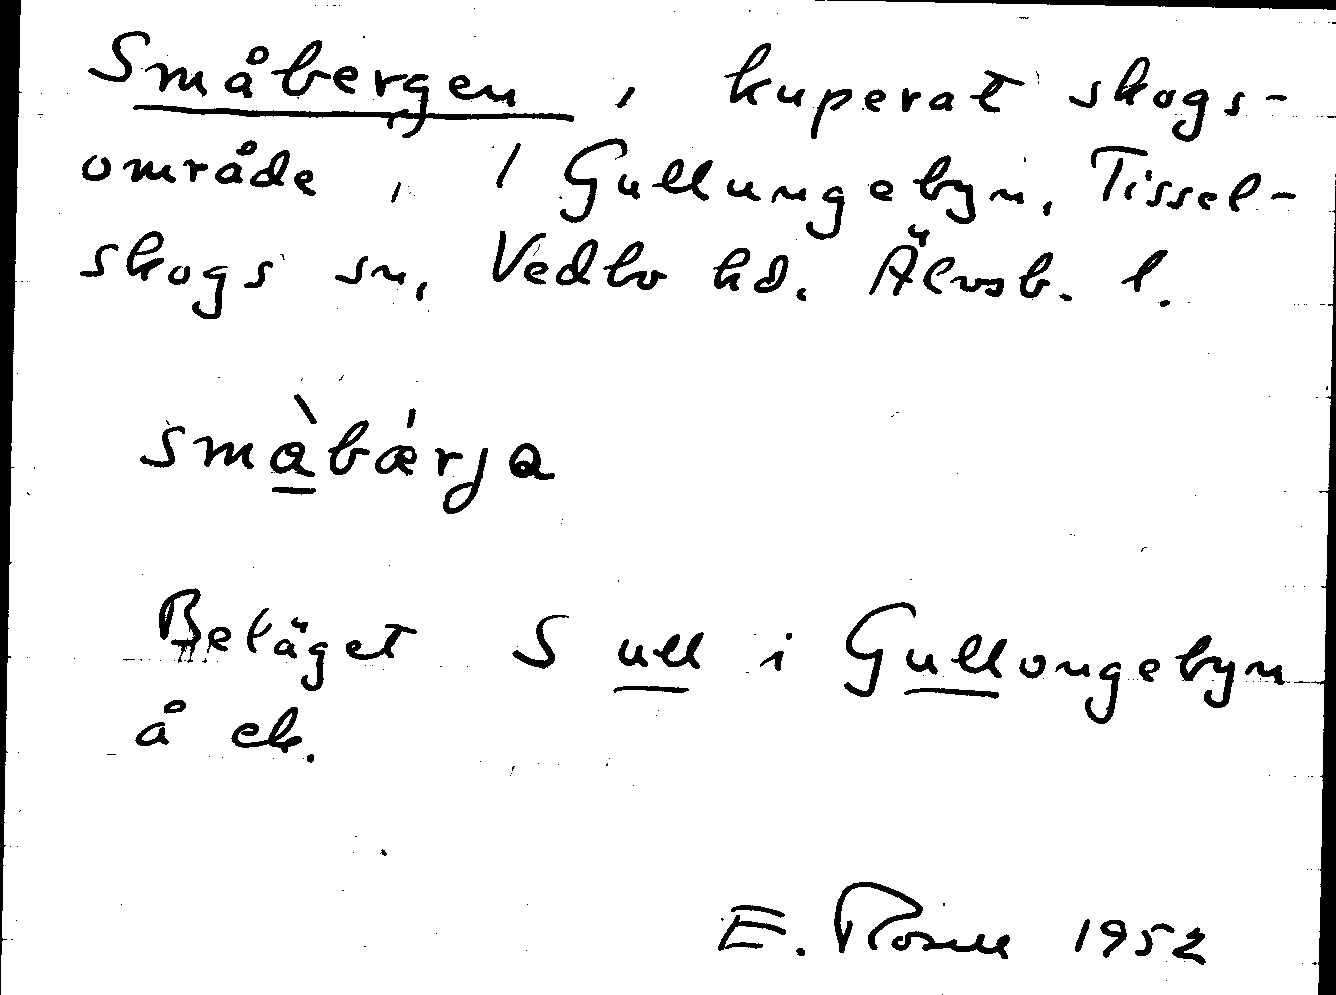 Småbergen, kuperat skogs-
område, / Gullungebyn, Tissel-
skogs sn, Vedbo hd. Älvsb. l.
småbærja
Beläget S ull i Gullungebyn
å ek.
E. Rosell 1952